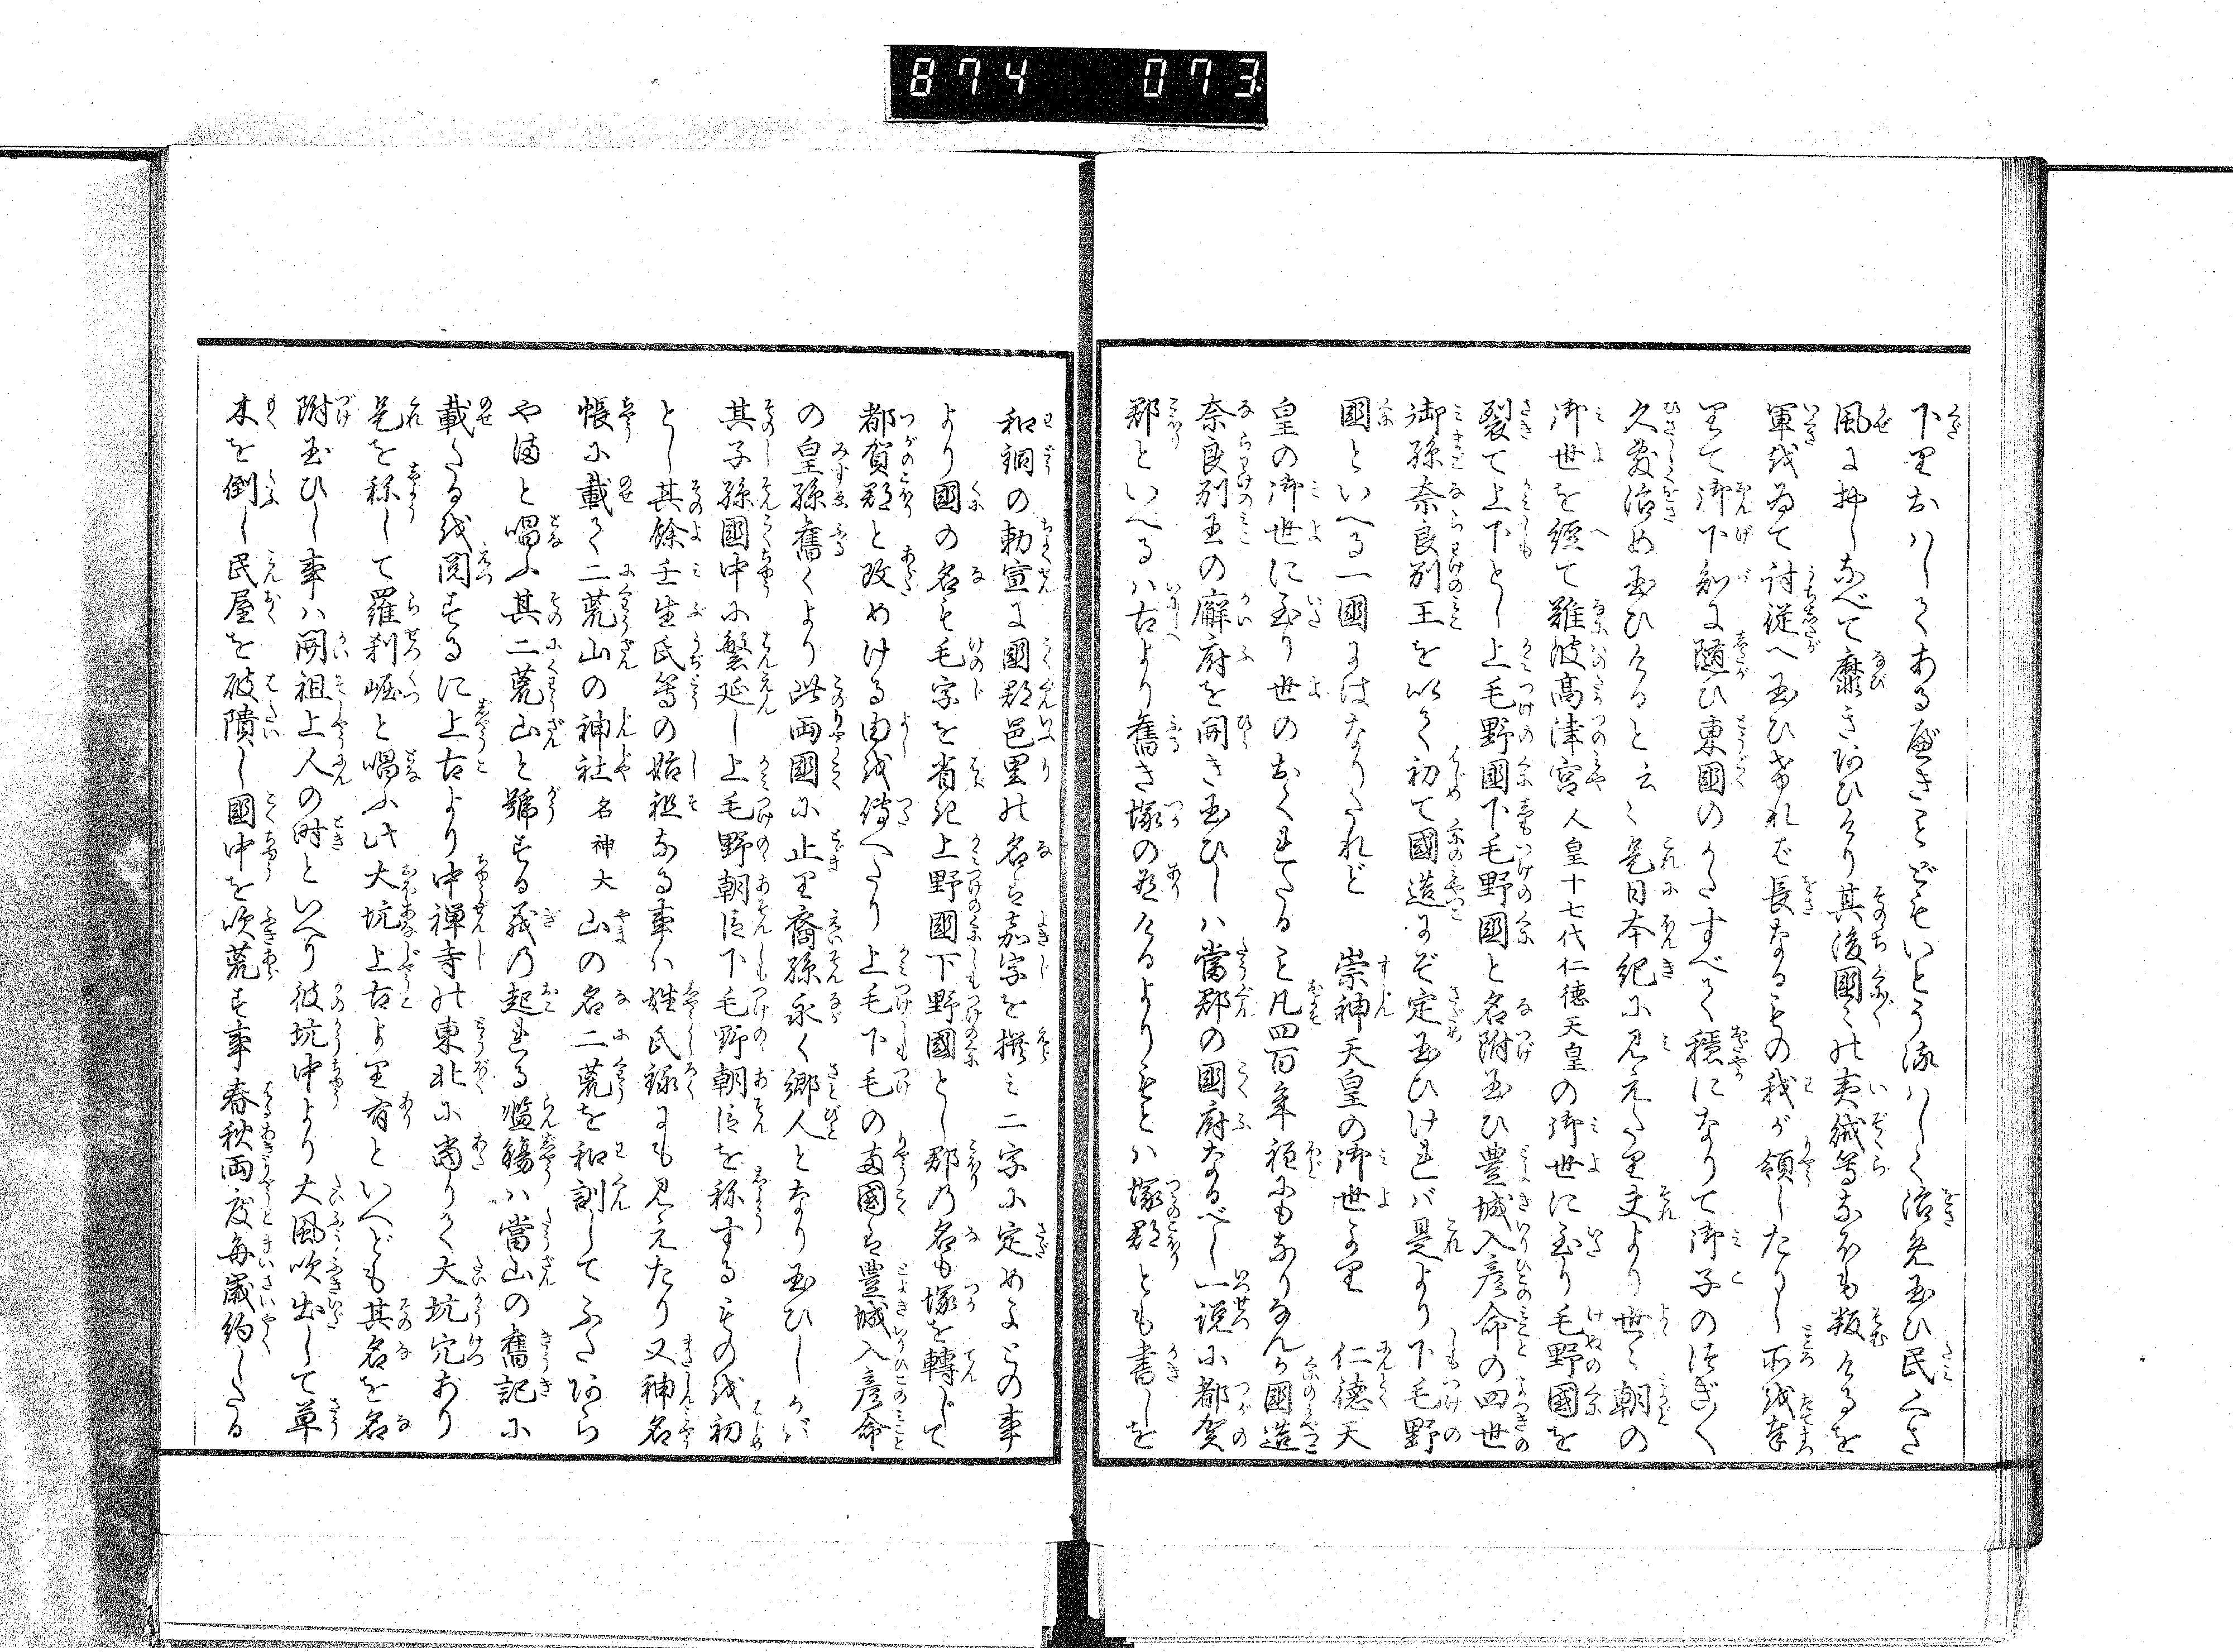 874 073
下りおはしてあるべきことどもいとうるはしく治め玉ひ民くさ
風に押しなべて靡きあひけり其後國々の夷賊等なほも叛けるを
軍を為て討從へ玉ひければ長なるもの我が領したりし所を奉
りて御下知に隨ひ東國のかたすべて穩になりて御子のほぎく
久敷治め玉ひけると云々是日本紀に見えたり夫より世々朝の
御世を經て難波高津宮人皇十七代仁徳天皇の御世に至り毛野國を
裂て上下とし上毛野國下毛野國と名附玉ひ豊城入彦命の四世
御孫奈良別王を以て初て國造にぞ定玉ひければ是より下毛野
國といへる一國にはなりたれど 崇神天皇の御世より 仁徳天
皇の御世に至り世のおくれたること凡四百年程にもなりなんか國造
奈良別王の廨府を開き玉ひしは當郡の國府なるべし一説に都賀
郡といへるは古より舊き塚の有けるよりもとは塚郡とも書しを
和銅の勅宣に國郡邑里の名は嘉字を撰み二字に定めよとの事
より國の名も毛字を省紀上野國下野國とし郡の名も塚を轉じて
都賀郡と改めける由を傳へたり上毛下毛の両國は豊城入彦命
の皇孫舊くより此両國に止り裔孫永く郷人となり玉ひしかば
其子孫國中に繁延し上毛野朝臣下毛野朝臣を称するもの を初
とし其餘壬生氏等の始祖なる事は姓氏録にも見えたり又神名
帳に載て二荒山の神社名神大山の名二荒を和訓してふたあら
やまと唱ふ其二荒山と號する義の起れる濫觴は當山の舊記に
載たるを閲するに上古より中禅寺の東北に當りて大坑穴あり
是を称して羅刹崛と唱ふ此大坑上古より有といへども其名を名
附玉ひし事は開祖上人の時といへり彼坑中より大風吹出して草
木を倒し民屋を破隤し國中を吹荒す事春秋両度毎歳約したる